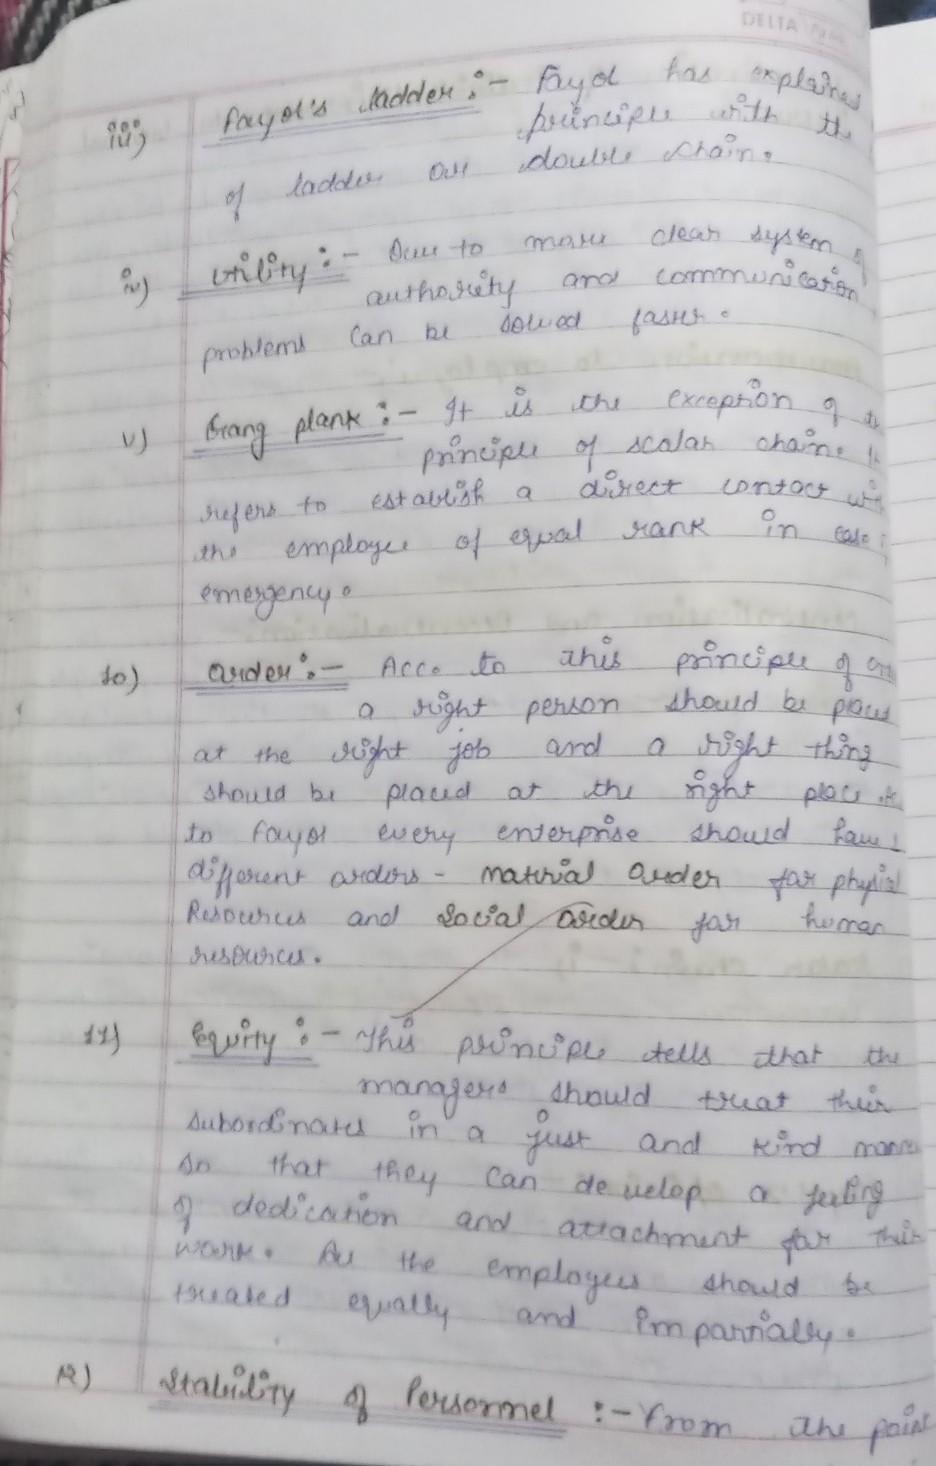 DELTA
iii) Fayol's ladder :- Fayol has explained
principle with the
of ladder our double chain.
iv) Utility :- Due to more clear system of
authority and communication
problems can be solved faster.
v) Gang plank :- It is the exception of the
principle of scalar chain. It
refers to establish a direct contact with
the employee of equal rank in case
emergency.
10) Order :- Acc. to this principle of
a right person should be placed
at the right job and a right thing
should be placed at the right place
to Fayol every enterprise should have
different orders - material order for physical
Resources and social order for human
resources.
11) Equity :- This principle tells that the
managers should treat their
subordinates in a just and kind manner
so that they can develop a feeling
of dedication and attachment for their
work. All the employees should be
treated equally and impartially.
12) Stability of Personnel :- From the point